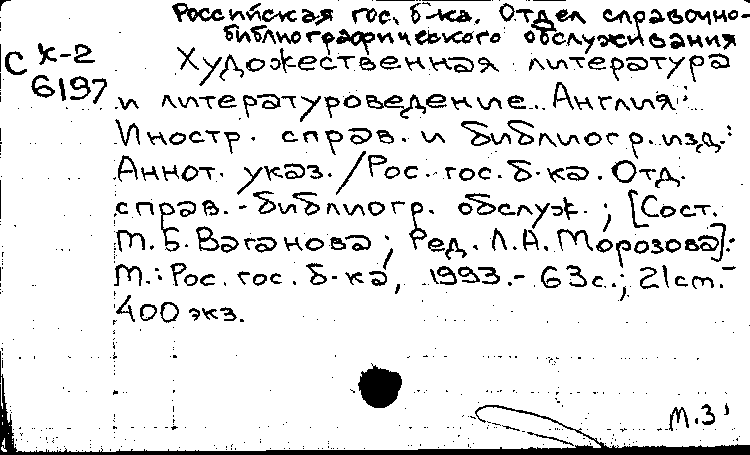 Российская гос. б-ка. Отдел справочно-
библиографического обслуживания
С Х-2
6197
Художественная литература
и литературоведение. Англия:
Иностр. справ. и библиогр. изд.:
Аннот. указ. / Рос. гос. б-ка. Отд.
справ.-библиогр. обслуж.; [Сост.
М.Б. Ваганова; Ред. Л.А. Морозова].-
М.: Рос. гос. б-ка, 1993.- 63с.; 21см.-
400 экз.
М.З